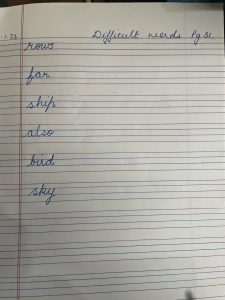 .1.22 Difficult words Pg 31.
rows
far
ship
also
bird
sky